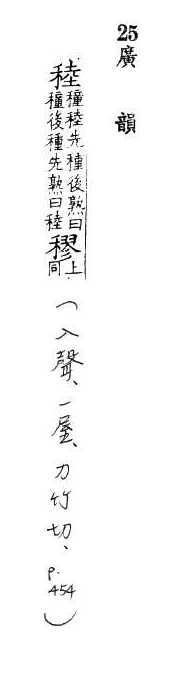 25廣韻
稑穜稑先種後熟曰穜後種先熟曰稑穋上同(入聲、一屋、力竹切、p.454)